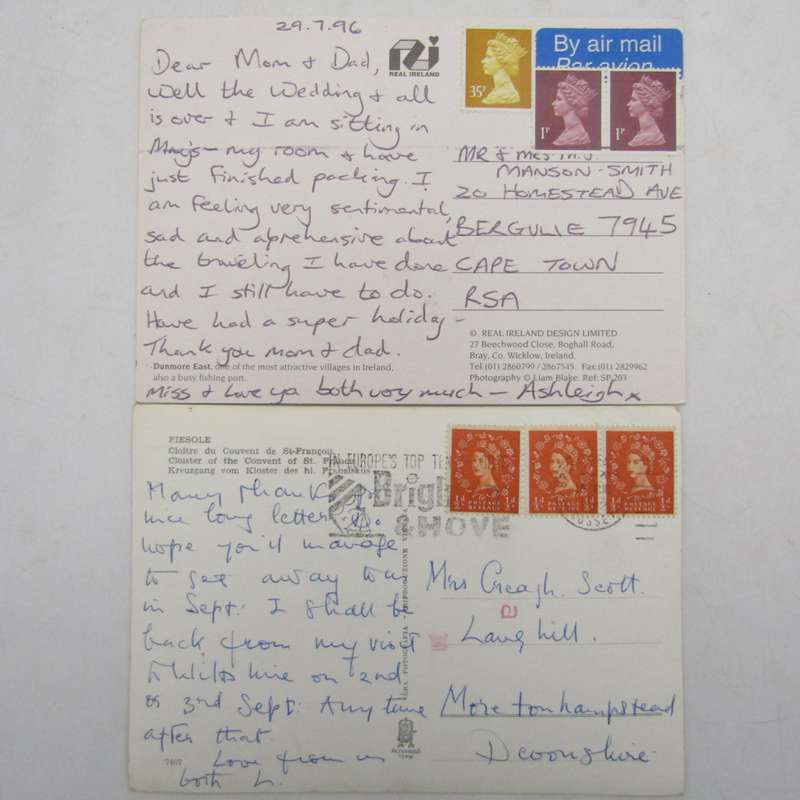 29.7.96
Dear Mom & Dad,
Well the Wedding & all
is over & I am sitting in
my room & have
just finished packing. I
am feeling very sentimental,
sad and aprehensive about
the traveling I have done
and I still have to do.
Have had a super holiday -
Thank you mom & dad.
Miss & Love ya both very much - Ashleigh x
REAL IRELAND
35P
By air mail
Par avion
1P
1P
MR & MRS M.J.
MANSON-SMITH
20 HOMESTEAD AVE
BERGULIE 7945
CAPE TOWN
RSA
© REAL IRELAND DESIGN LIMITED
27 Beechwood Close, Boghall Road,
Bray, Co. Wicklow, Ireland.
Tel:(01) 2860799 / 2867545. Fax:(01) 2829962
Photography © Liam Blake. Ref: SP 203
Dunmore East, one of the most attractive villages in Ireland,
also a busy fishing port.
FIESOLE
Cloître du Couvent de St-François
Cloister of the Convent of St. Francis
Kreuzgang vom Kloster des hl. Franziskus
IN EUROPE'S TOP
Brigh
& HOVE
POSTAGE REVENUE
POSTAGE REVENUE
POSTAGE REVENUE
Many thanks for
nice long letter
hope you'll manage
to get away
in Sept: I shall be
back from my visit
to Wiltshire on 2nd
or 3rd Sept: Any time
after that
Love from us
both
Mrs Creagh. Scott.
Langhill.
Moretonhampstead
Devonshire